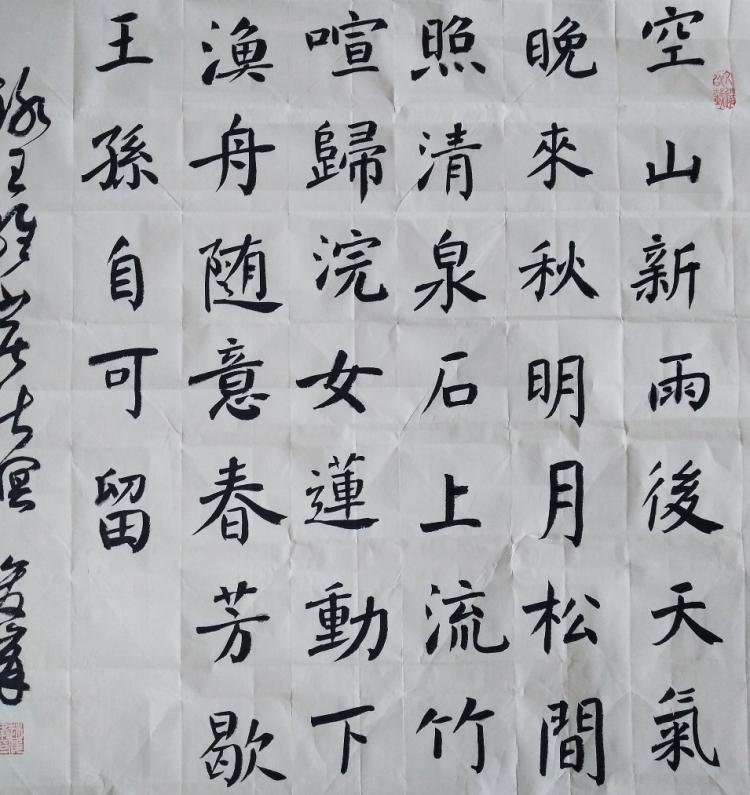 空山新雨後天氣
晚來秋明月松間
照清泉石上流竹
喧歸浣女蓮動下
漁舟随意春芳歇
王孫自可留
錄王維山居秋暝